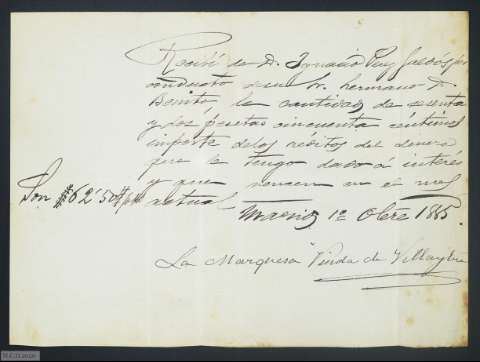 Recibí de D. Ignacio Perez Galdós por
conducto de su hermano D.
Benito, la cantidad de sesenta
y dos pesetas cincuenta céntimos
importe de los réditos del dinero
que le tengo dado á interés
y que vencen en el mes
actual
Son 62'50
Madrid 1º Obre 1885.
La Marquesa Viuda de